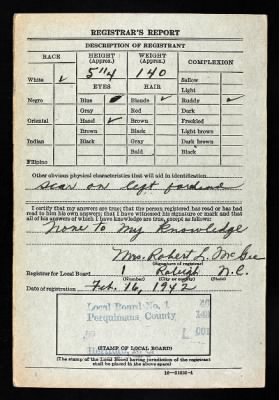 REGISTRAR'S REPORT
DESCRIPTION OF REGISTRANT
RACE HEIGHT (Approx.) WEIGHT (Approx.) COMPLEXION
5"4 140
White ✓ EYES HAIR Sallow
Light
Negro Blue Blonde ✓ Ruddy ✓
Gray Red Dark
Oriental Hazel ✓ Brown Freckled
Brown Black Light brown
Indian Black Gray Dark brown
Bald Black
Filipino
Other obvious physical characteristics that will aid in identification
scar on left
I certify that my answers are true; that the person registered has read or has had
read to him his own answers; that I have witnessed his signature or mark and that
all of his answers of which I have knowledge are true, except as follows:
None to my Knowledge
Mrs. Robert L.
(Signature of registrar)
Registrar for Local Board 1 Raleigh N.C.
(Number) (City or county) (State)
Date of registration Feb. 16, 1942
Local Board No. 1
Perquimans County
(STAMP OF LOCAL BOARD)
(The stamp of the Local Board having jurisdiction of the registrant
shall be placed in the above space)